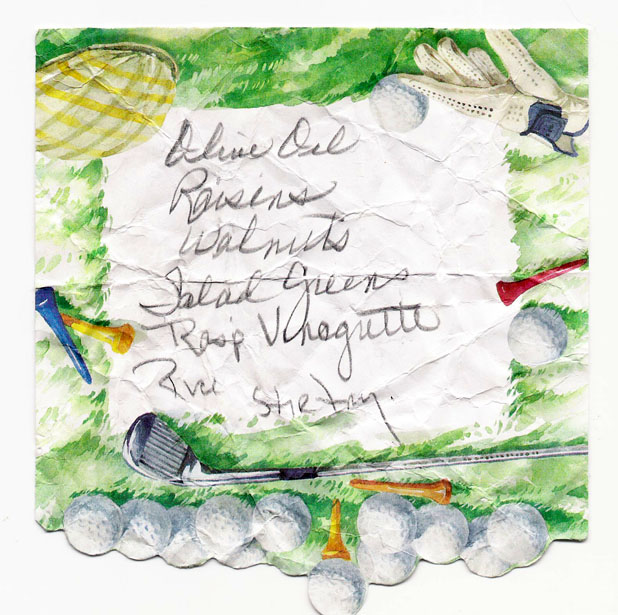 Olive Oil
Raisens
Walnuts
Salad Greens
Rasp Vinagrette
Rice
Stir Fry.